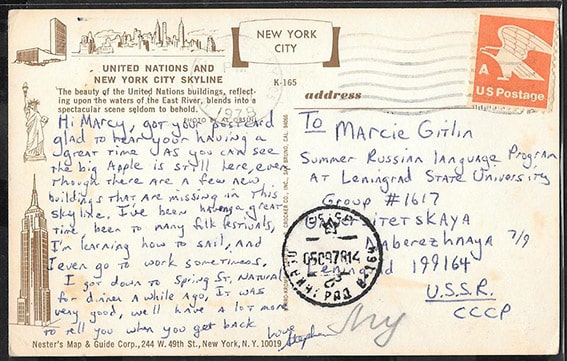 UNITED NATIONS AND
NEW YORK CITY SKYLINE
The beauty of the United Nations buildings, reflect-
ing upon the waters of the East River, blends into a
spectacular scene seldom to behold.
PHOTO BY AL
Hi Marcy, got your postcard
glad to hear your having a
great time. As you can see
the big Apple is still here, even
though there are a few new
buildings that are missing in this
sky line. I've been having a great
time, been to many folk festivals,
I'm learning how to sail, and
I even go to work sometimes,
I got down to Spring St. Natural
for dinner a while ago, It was
very good, we'll have a lot more
to tell you when you get back
Love
Stephen
Nester's Map & Guide Corp., 244 W. 49th St., New York, N.Y. 10019
NEW YORK
CITY
K-165
address
A
US Postage
To Marcie Gitlin
Summer Russian language Program
AT Leningrad State University
Group #1617
Naberezhnaya 7/9
Leningrad 199164
U.S.S.R.
CCCP
05097814